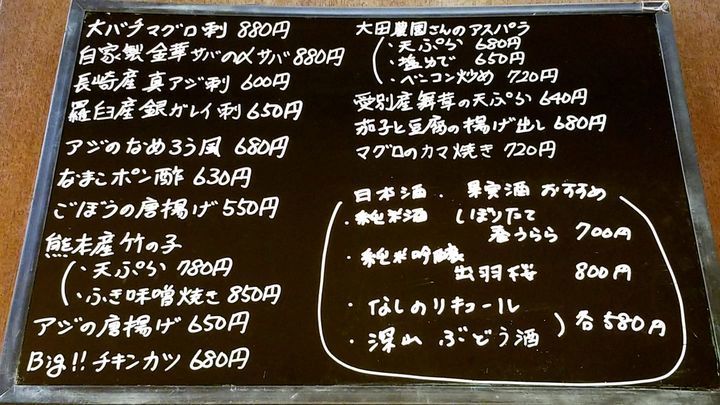 大バチマグロ刺 880円
自家製金華サバの〆サバ 880円
長崎産真アジ刺 600円
羅臼産銀ガレイ刺 650円
アジのなめろう風 680円
なまこポン酢 630円
ごぼうの唐揚げ 550円
熊本産竹の子
・天ぷら 780円
・ふき味噌焼き 850円
アジの唐揚げ 650円
Big!! チキンカツ 680円
大田農園さんのアスパラ
・天ぷら 680円
・塩ゆで 650円
・ベーコン炒め 720円
愛別産舞茸の天ぷら 640円
茄子と豆腐の揚げ出し 680円
マグロのカマ焼き 720円
日本酒・果実酒 おすすめ
・純米酒 しぼりたて
春うらら 700円
・純米吟醸
出羽桜 800円
・なしのリキュール
・深山 ぶどう酒
各580円